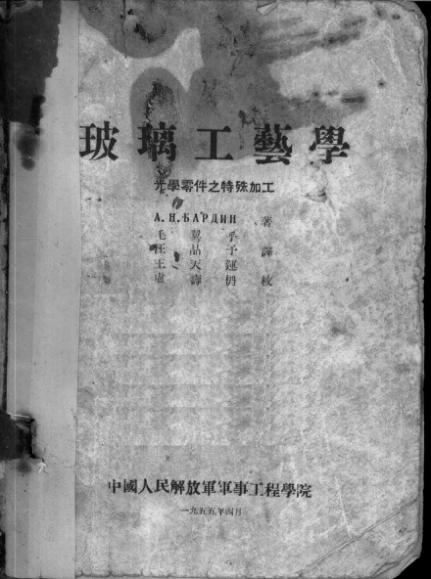 玻璃工藝學
光學零件之特殊加工
А.Н.БАРДИН 著
毛翼乎
汪品予 譯
王天運
盧譯 校
中國人民解放軍軍事工程學院
一九五五年四月